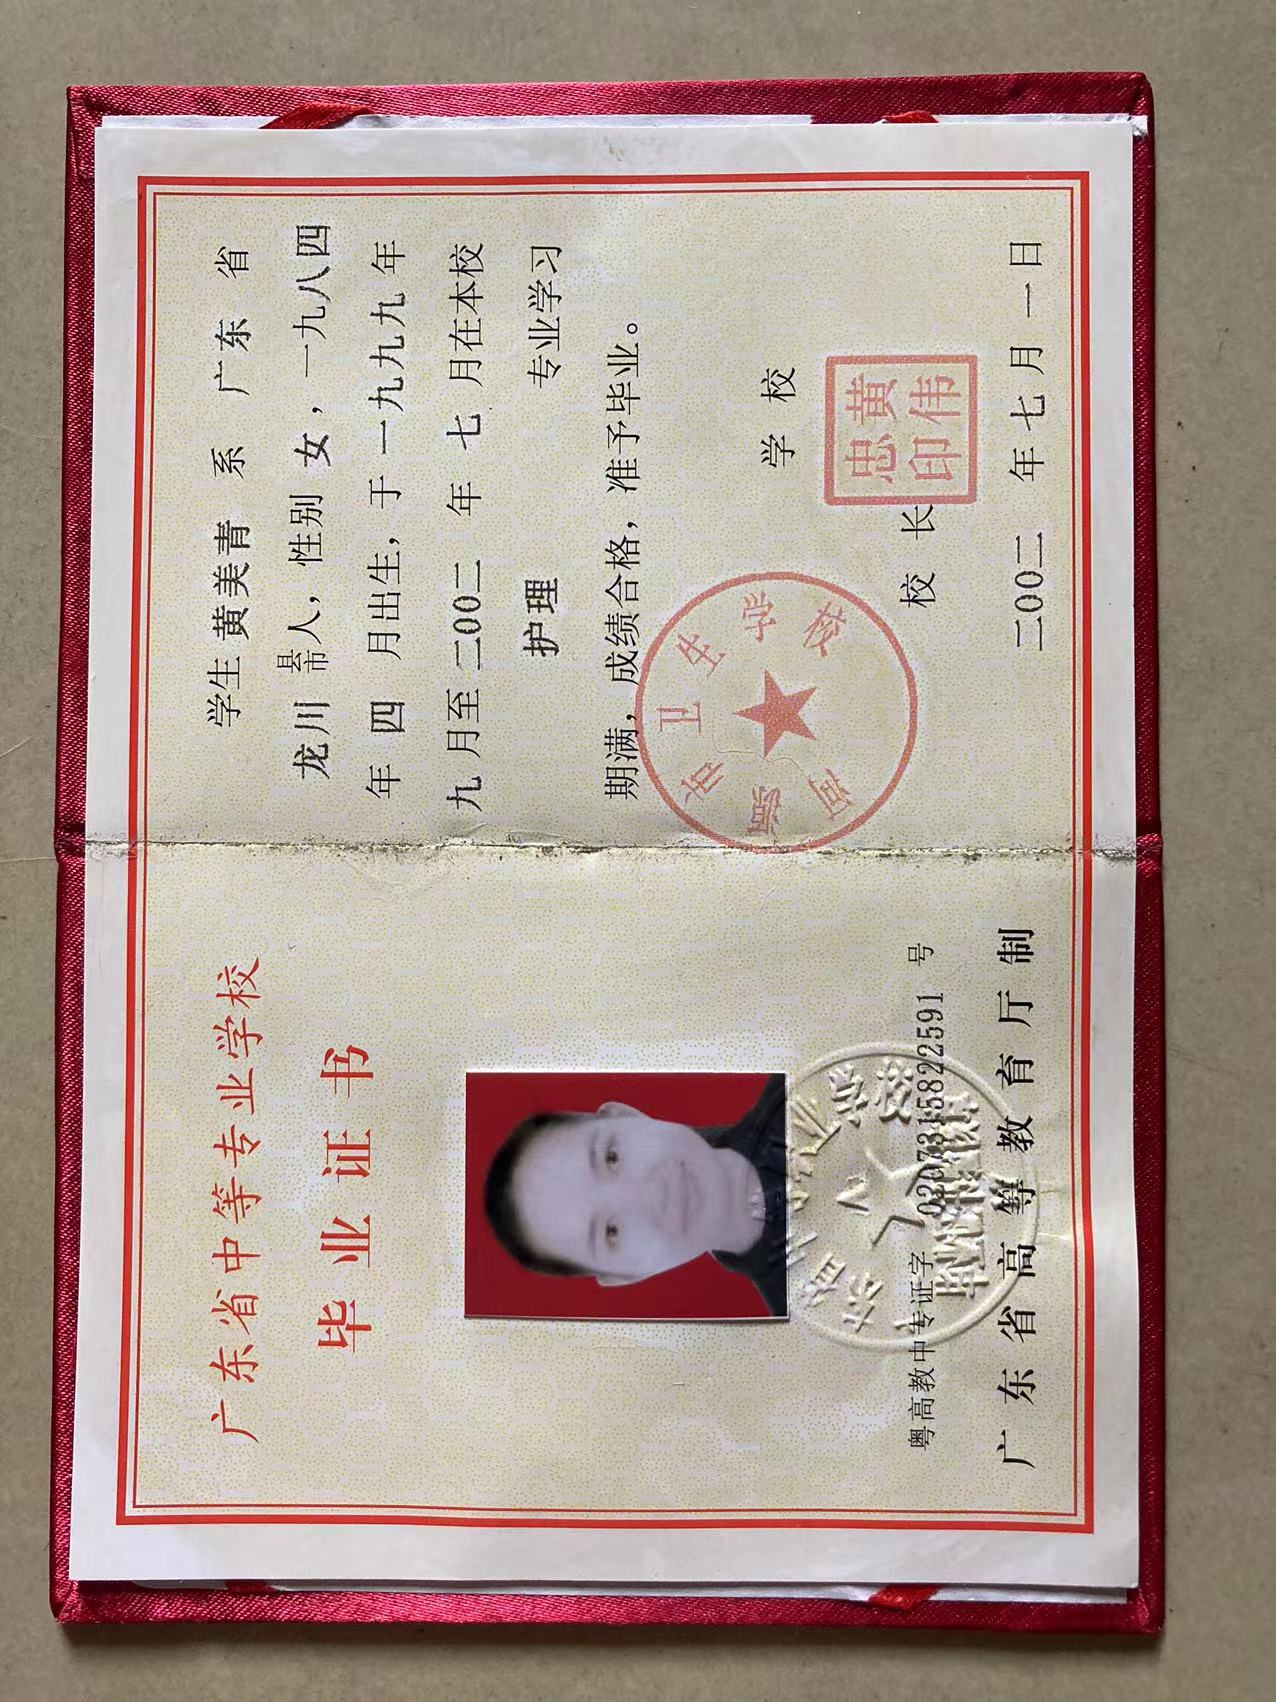 广东省中等专业学校
毕业证书
粤高教中专证字 0207315822591 号
广东省高等教育厅制
学生 黄美青 系 广东 省
龙川 县市人，性别 女，一九八四
年 四 月出生，于一九九九年
九月至二00二年 七 月在本校
护理 专业学习
期满，成绩合格，准予毕业。
学校
河源市卫生学校
校长
黄伟忠印
二00二 年 七 月 一 日